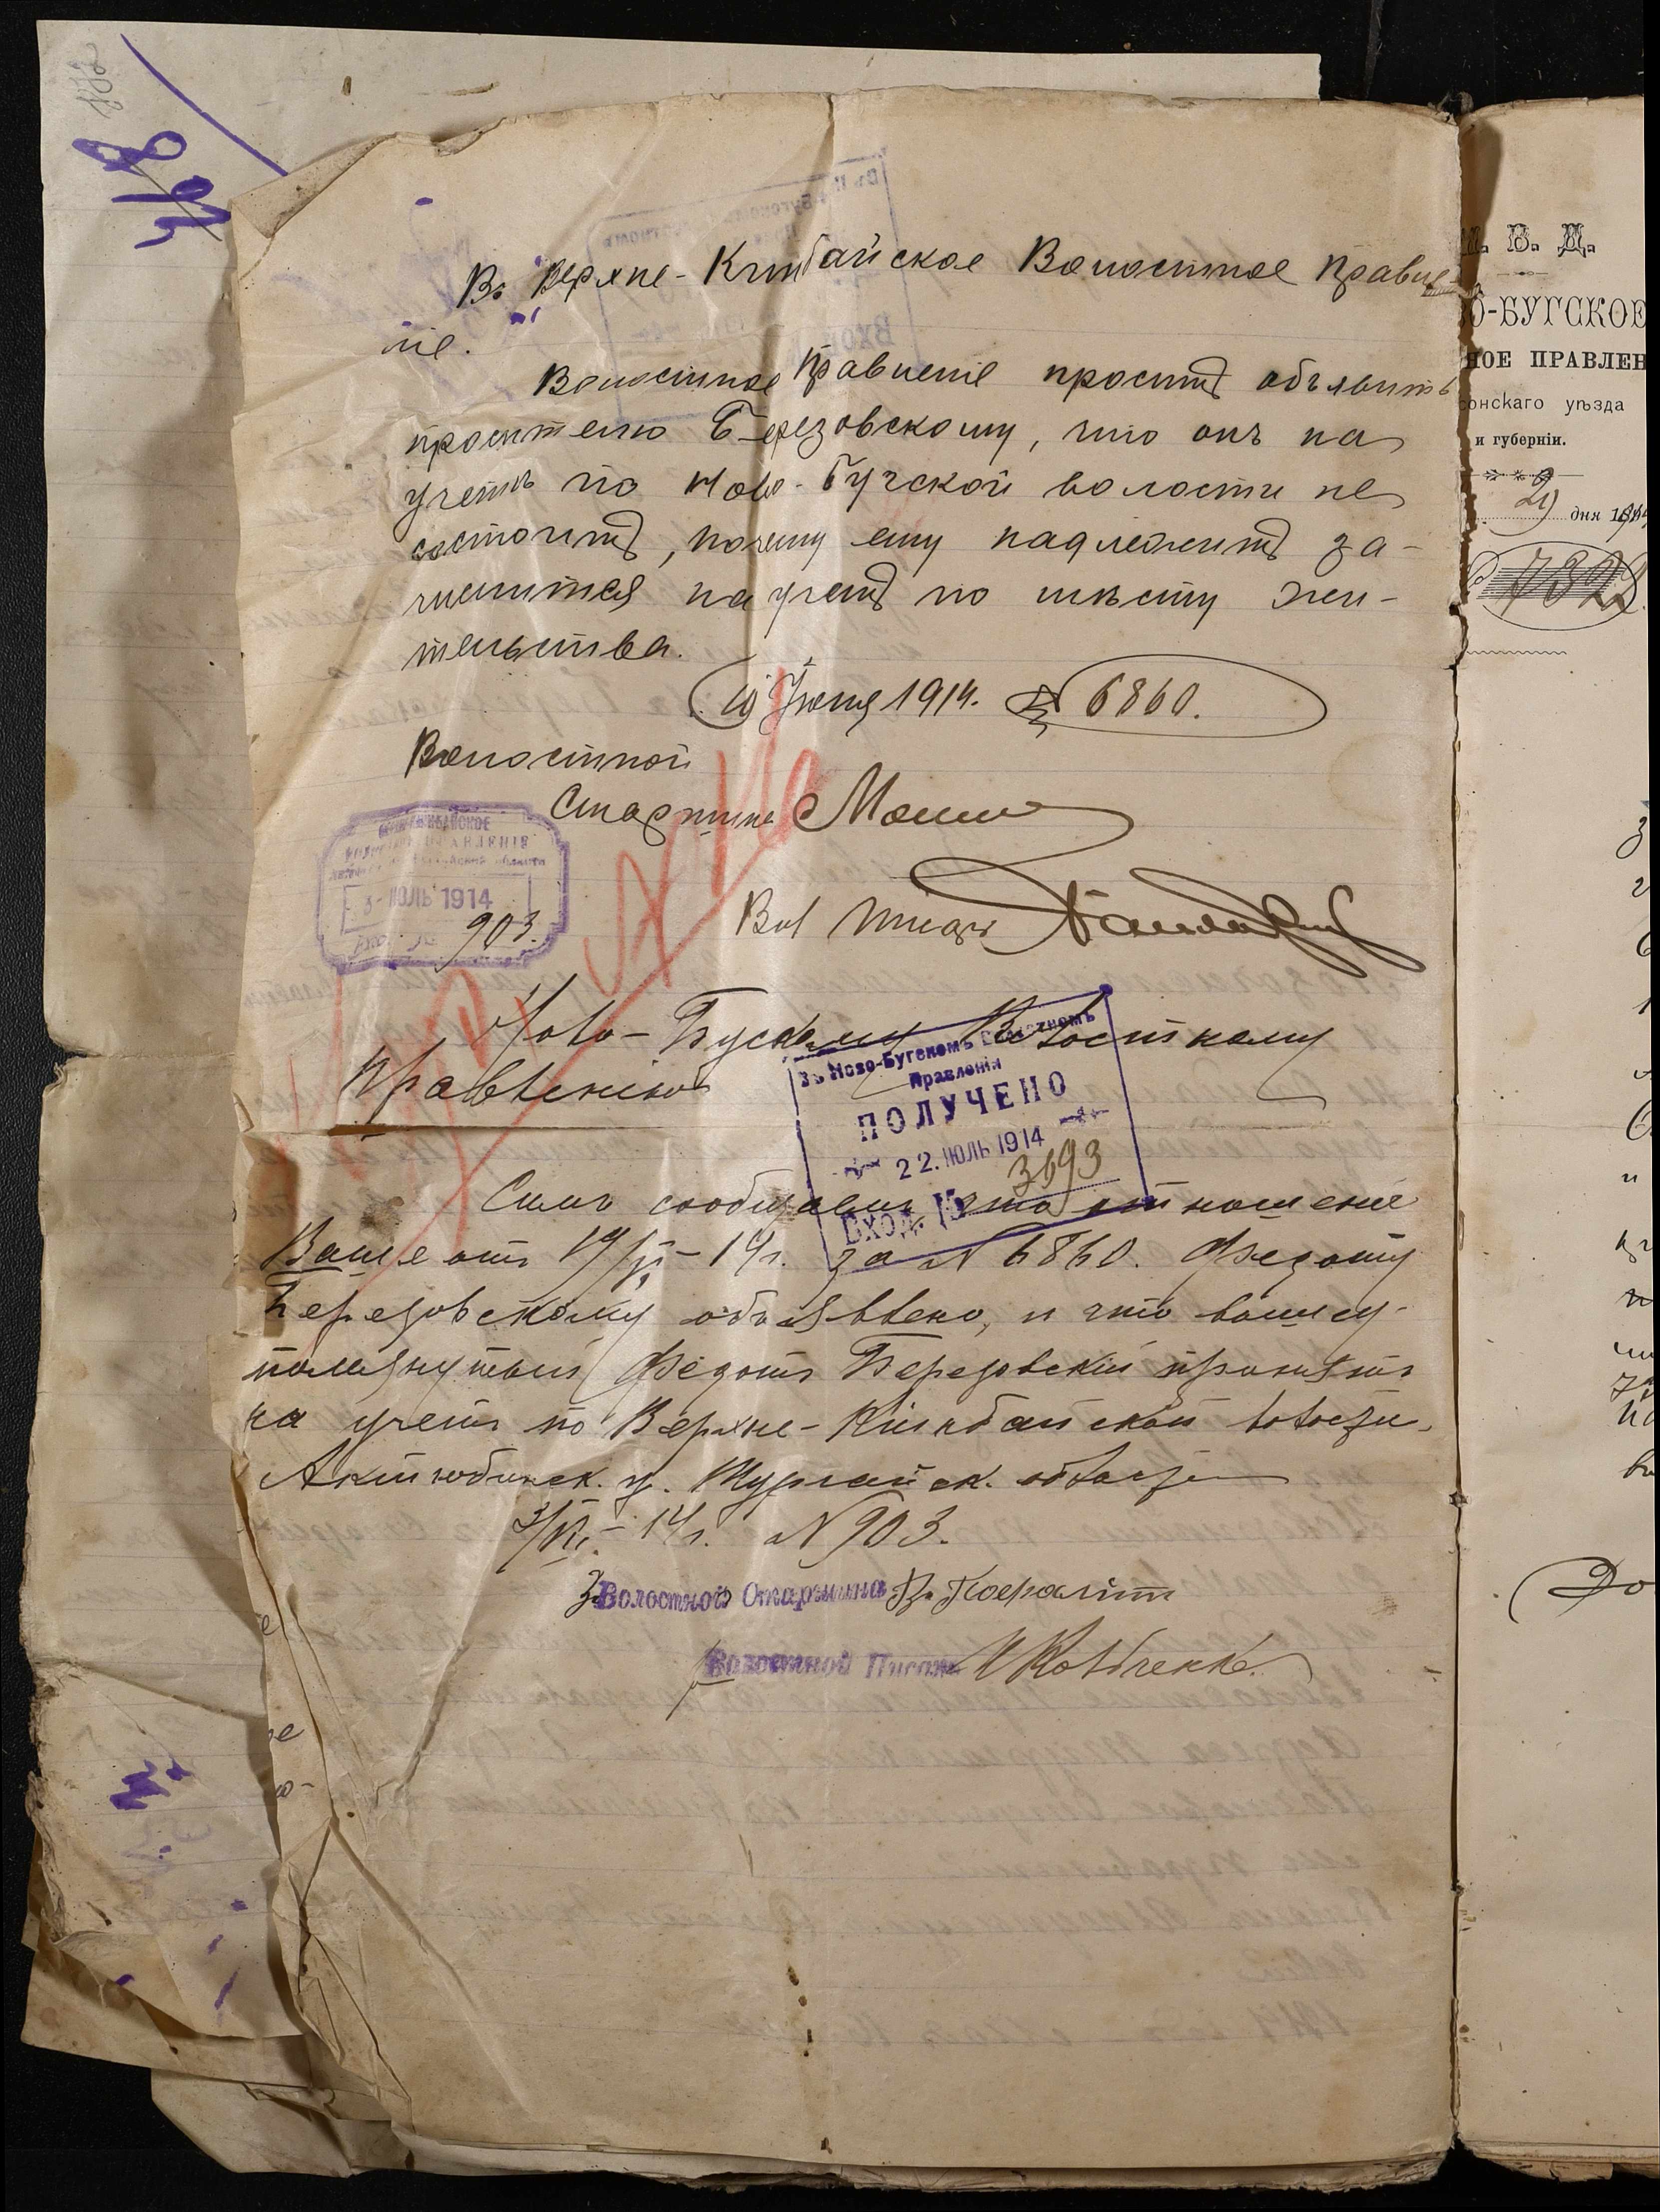 418
Въ Верхне-Киибайское Волостное Правле-
ніе.
Волостное Правленіе проситъ объявить
просителю Березовскому, что онъ на
учетѣ по Ново-Бугской волости не
состоитъ, почему ему надлежитъ за-
числится на учетъ по мѣсту жи-
тельства.
19 Іюня 1914. № 6860.
Волостной
Старшина
Вол Писарь
ВОЛОСТНОЕ ПРАВЛЕНІЕ
3- ІЮЛЬ 1914
903.
Ново-Бускому Волосткому
Правленію
Въ Ново-Бугскомъ Волостномъ
Правленіи
ПОЛУЧЕНО
22. ІЮЛЬ 1914
ВХОД. № 3693
Симъ сообщаемъ что отношеніе
Ваше отъ 19/VI-14г. за № 6860. Федоту
Березовскому объявлено, и что вышеу-
помянутый Федотъ Березовскій принятъ
на учетъ по Верхне-Киибайской
Актюбинск. у. Тургайск.
3/VII-14г. № 903.
За Волостной Старшина
Волостной Писарь
В. Д.
О-БУГСКОЕ
НОЕ ПРАВЛЕН
сонскаго уѣзда
и губерніи.
дня 1914
7322
До